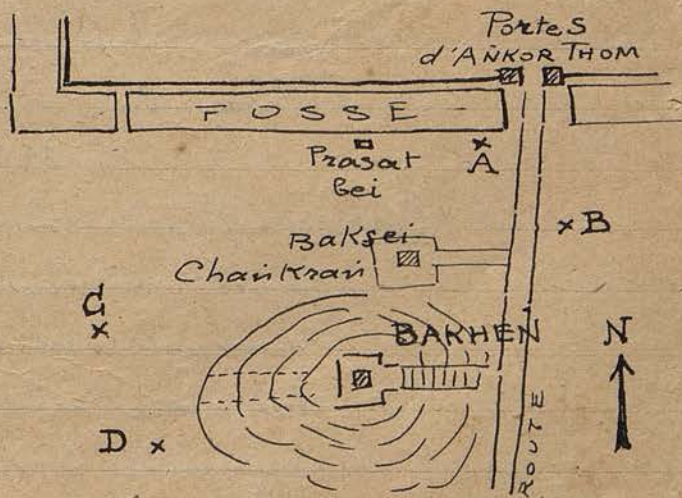 Portes
d'AÑKOR THOM
FOSSE
Prasat
bei
A
B
Baksei
Chañkrañ
C
BAKHEN
N
D
ROUTE